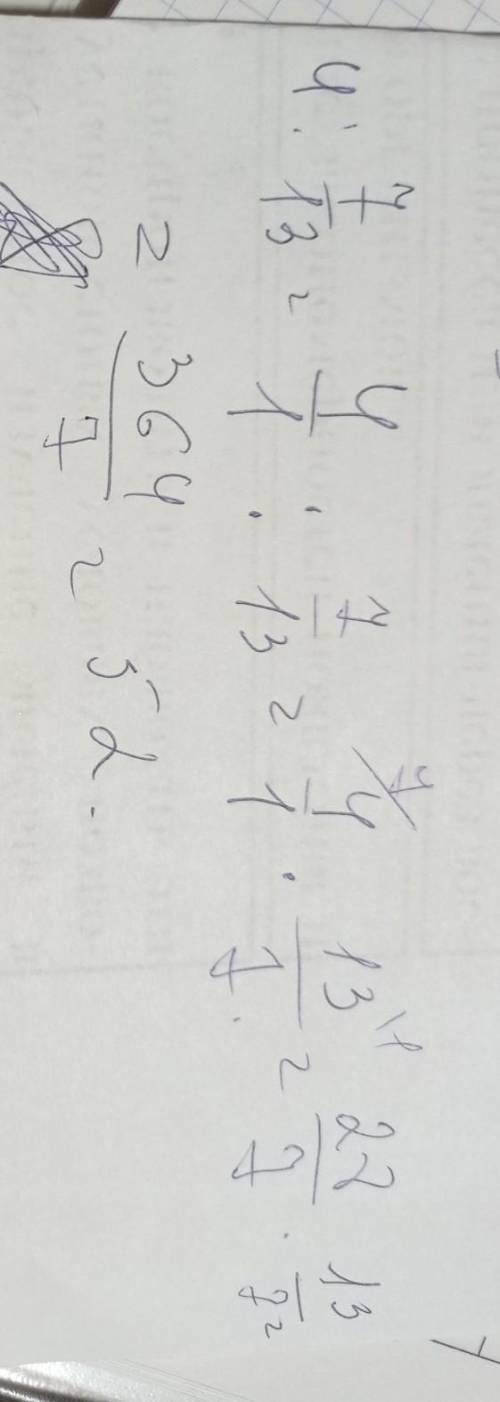 4 : 7/13 = 4/1 : 7/13 = 4/1 · 13/7 = 27/7 · 13/7 =
= 364/7 = 52.